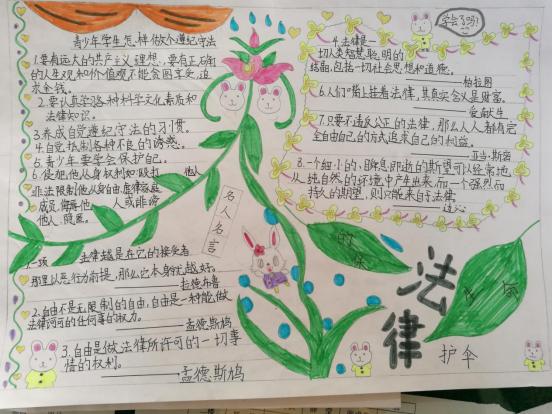 青少年学生怎样做才遵纪守法
1.要有远大的共产主义理想,要有正确
的人生观和价值观不能贪图享受,追
求金钱。
2.要认真学习各种科学文化素质和
法律知识。
3.养成自觉遵纪守法的习惯。
4.自觉抵制各种不良的诱惑。
5.青少年要学会保护自己。
6.侵犯他人身权利如殴打 他人
非法限制他人身自由虐待家庭
成员侮辱他 人或诽谤
他人
名人名言
法律越是在它的接受者
那里以恶行为前提,那么它本身就越好。
2.自由不是无限制的自由,自由是一种能做
法律许可的任何事的权力。
孟德斯鸠
3.自由是做法律所许可的一切事
情的权利。
孟德斯鸠
学会了吗?
4.法律是一
切人类智慧聪明的
结晶,包括一切社会思想和道德。
柏拉图
6.人们嘴上挂着法律,其真实含义是财富。
爱献生
7.只要不违反公正的法律,那么人人都有完
全自由以自己的方式追求自己的利益。
亚当·斯密
8.一个细小的、瞬息即逝的期望可以经常地
从纯自然的环境中产生出来,而一个强烈而
持久的期望,则只能来自于法律。
边沁
法律
的保
护伞